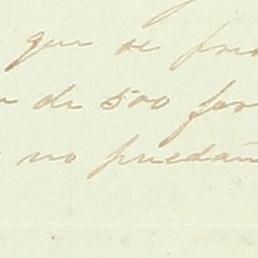 que se
de 500
no puedan